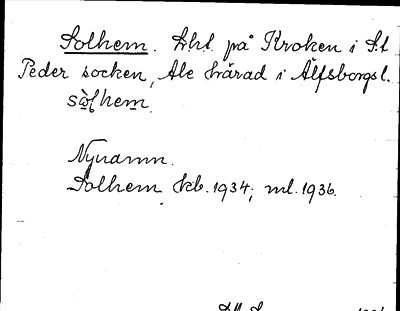 Solhem. Lht. på Kroken i S:t
Peder socken, Ale härad i Älfsborgs l.
sɷ̀lhem.
Nynamn.
Solhem kb. 1934; ml. 1936.